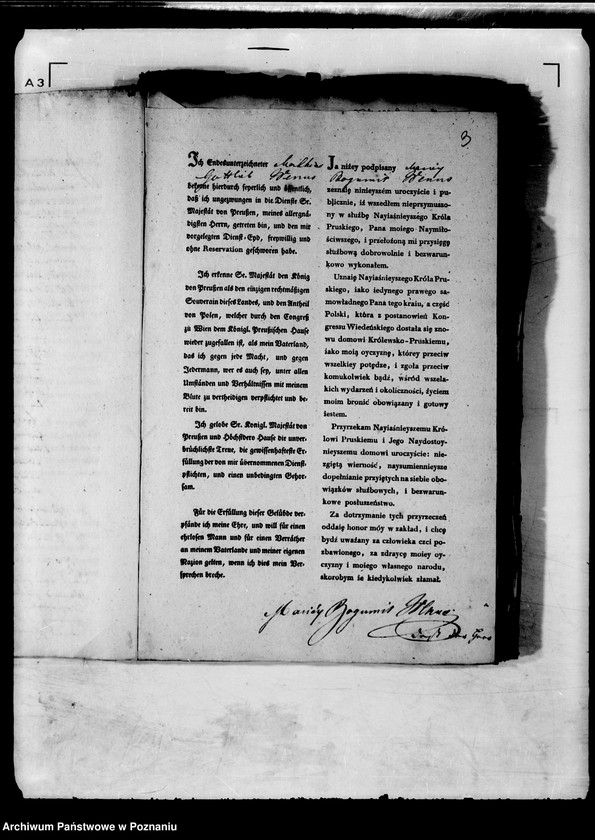 A 3
3
Ich Endesunterzeichneter
Gottlieb Wenus
bekenne hierdurch feyerlich und öffentlich,
daß ich ungezwungen in die Dienste Sr.
Majestät von Preußen, meines allergnä-
digsten Herrn, getreten bin, und den mir
vorgelegten Dienst-Eyd, freywillig und
ohne Reservation geschworen habe.
Ich erkenne Se. Majestät den König
von Preußen als den einzigen rechtmäßigen
Souverain dieses Landes, und den Antheil
von Polen, welcher durch den Congreß
zu Wien dem Königl. Preußischen Hause
wieder zugefallen ist, als mein Vaterland,
das ich gegen jede Macht, und gegen
Jedermann, wer es auch sey, unter allen
Umständen und Verhältnissen mit meinem
Blute zu vertheidigen verpflichtet und be-
reit bin.
Ich gelobe Sr. Königl. Majestät von
Preußen und Höchstdero Hause die unver-
brüchlichste Treue, die gewissenhafteste Er-
füllung der von mir übernommenen Dienst-
pflichten, und einen unbedingten Gehor-
sam.
Für die Erfüllung dieser Gelübde ver-
pfände ich meine Ehre, und will für einen
ehrlosen Mann und für einen Verräther
an meinem Vaterlande und meiner eigenen
Nazion gelten, wenn ich dies mein Ver-
sprechen breche.
Ja niżey podpisany Maciéy
Bogumił Wenus
zeznaię ninieyszém uroczyście i pu-
blicznie, iż wszedłem nieprzymuszo-
ny w służbę Nayiaśnieyszego Króla
Pruskiego, Pana moiego Naymiło-
ściwszego, i przełożoną mi przysięgę
służbową dobrowolnie i bezwarun-
kowo wykonałem.
Uznaię Nayiaśnieyszego Króla Pru-
skiego, iako iedynego prawego sa-
mowładnego Pana tego kraiu, a część
Polski, która z postanowień Kon-
gressu Wiedeńskiego dostała się zno-
wu domowi Królewsko-Pruskiemu,
iako moią oyczyznę, którey przeciw
wszelkiey potędze, i zgoła przeciw
komukolwiek bądź, wśród wszela-
kich wydarzeń i okoliczności, życiem
moim bronić obowiązany i gotowy
iestem.
Przyrzekam Nayiaśnieyszemu Kró-
lowi Pruskiemu i Jego Naydostoy-
nieyszemu domowi uroczyście: nie-
zgiętą wierność, naysumiennieysze
dopełnianie przyiętych na siebie obo-
wiązków służbowych, i bezwarun-
kowe posłuszeństwo.
Za dotrzymanie tych przyrzeczeń
oddaię honor móy w zakład, i chcę
bydź uważany za człowieka czci po-
zbawionego, za zdraycę moiey oy-
czyzny i moiego własnego narodu,
skorobym ie kiedykolwiek złamał.
Maciéy Bogumił Wenus
Archiwum Państwowe w Poznaniu